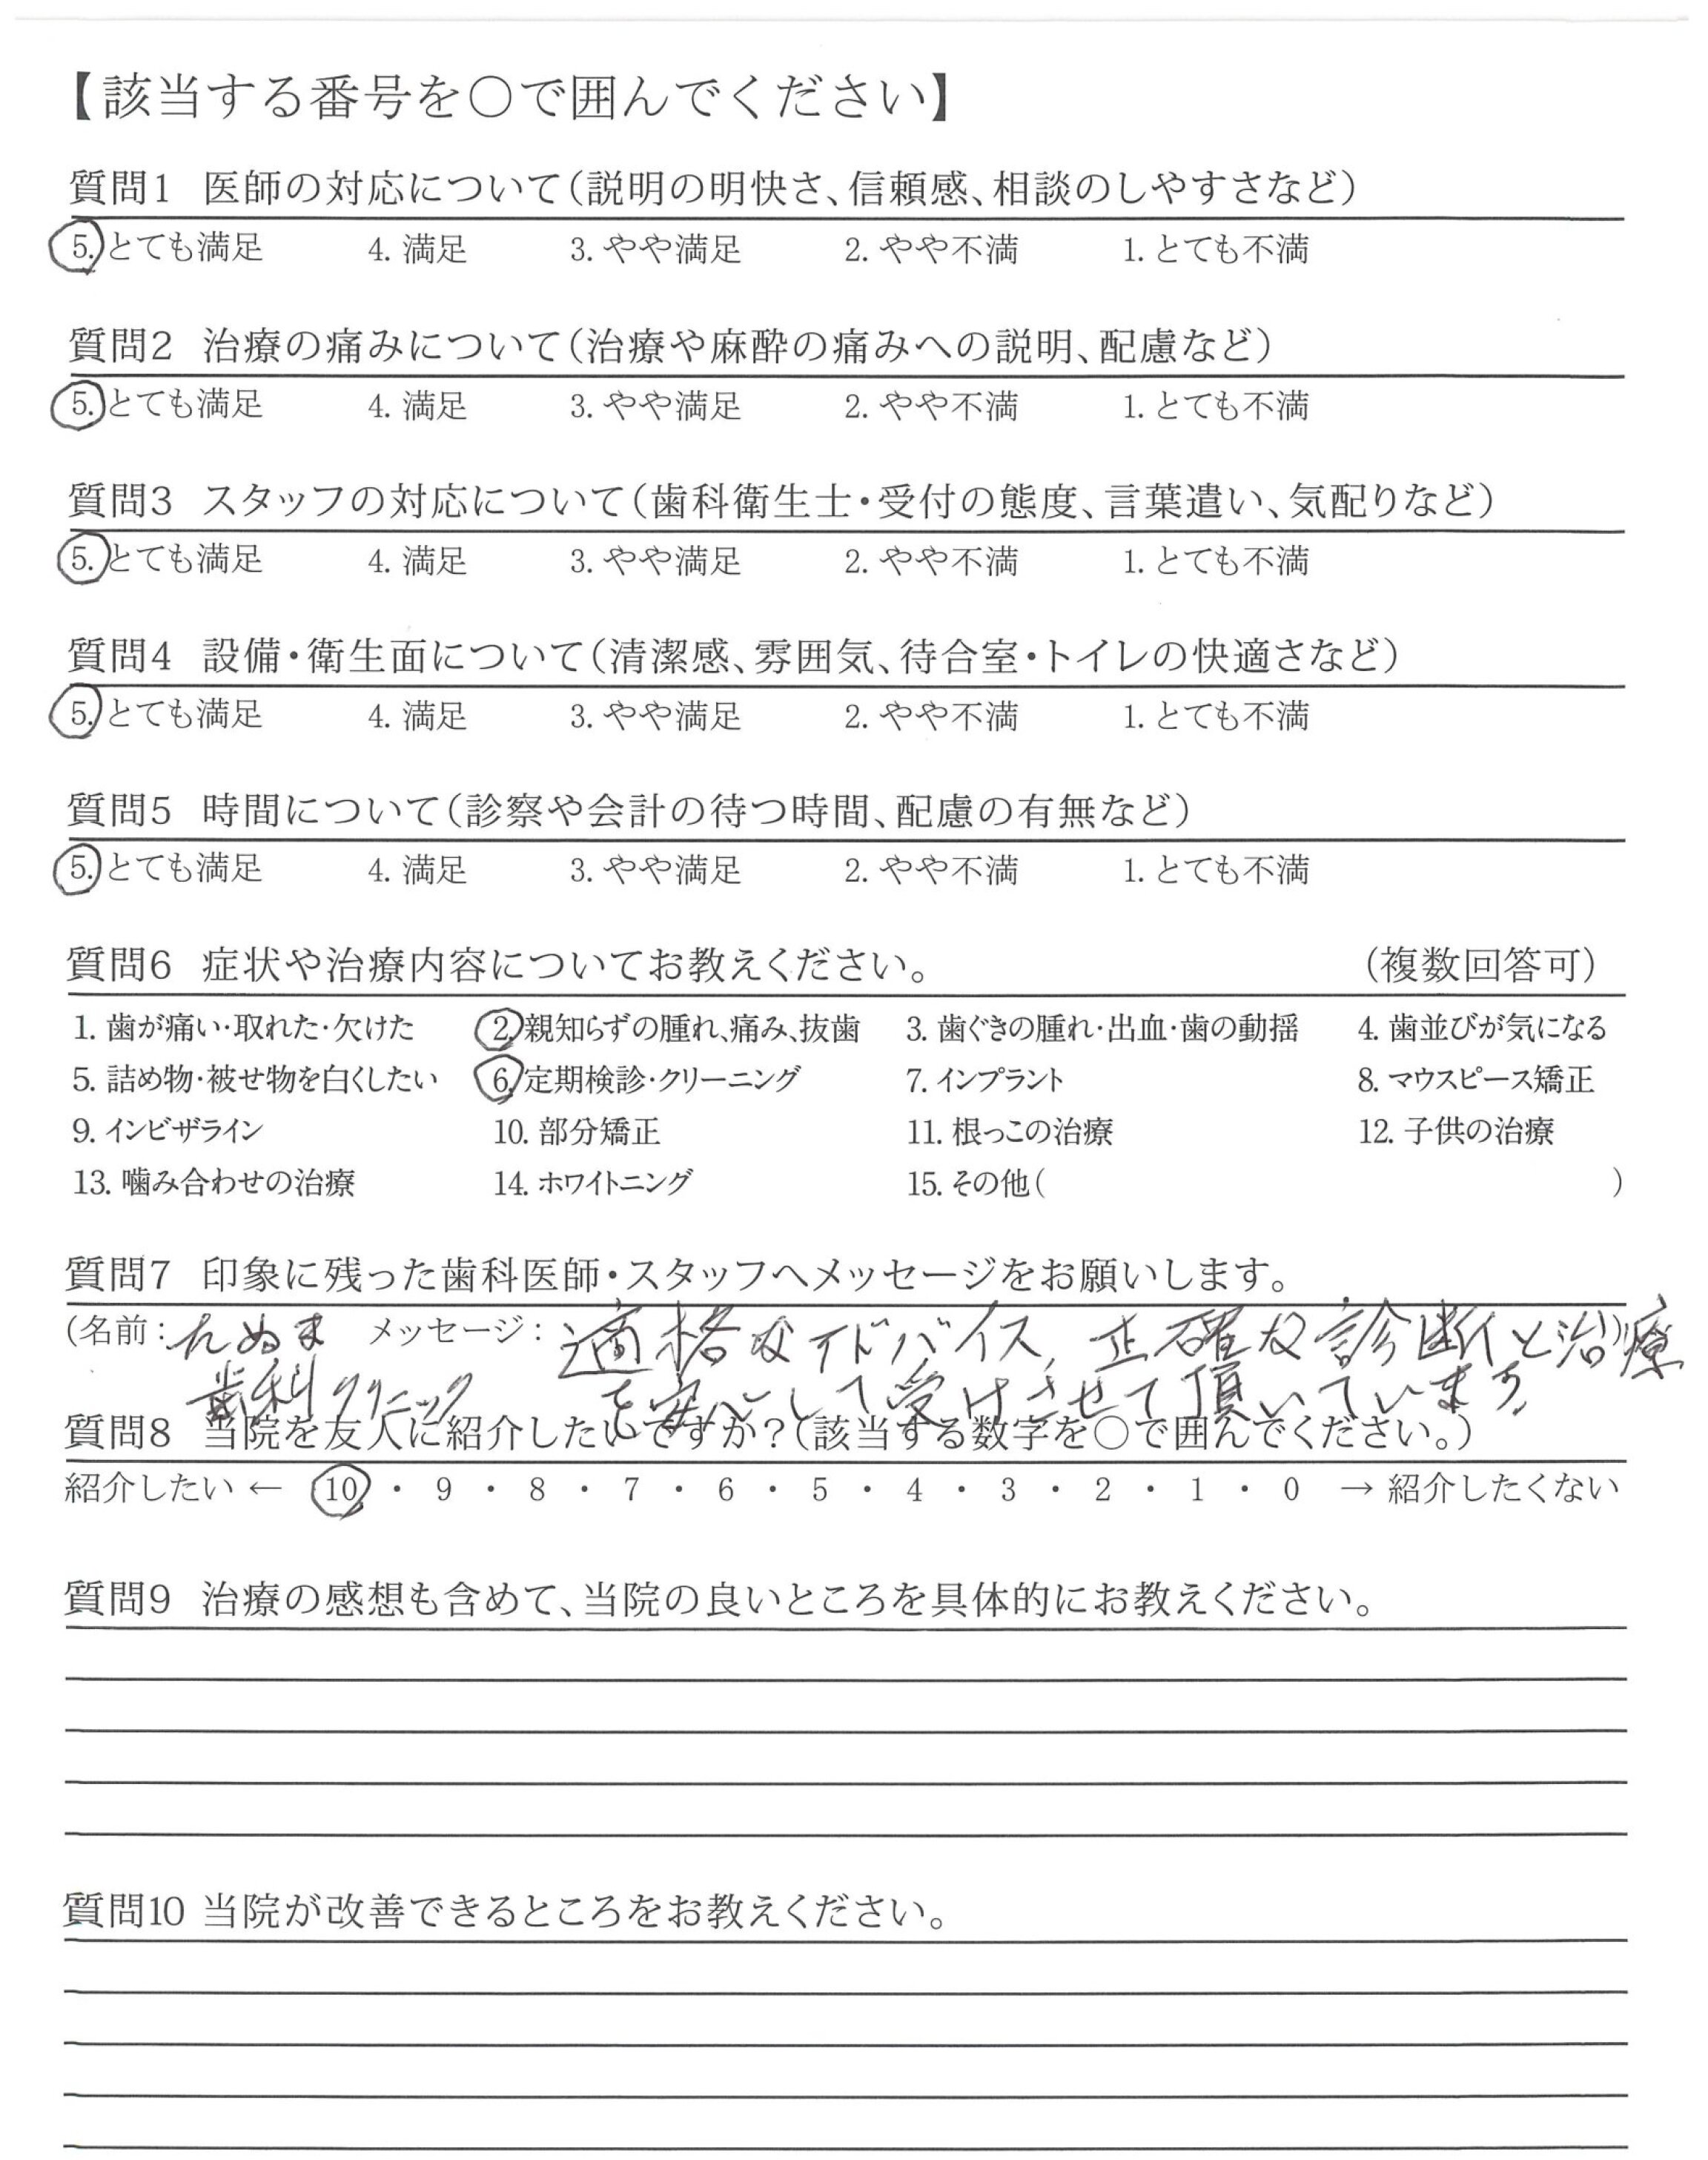 【該当する番号を○で囲んでください】
質問1 医師の対応について(説明の明快さ、信頼感、相談のしやすさなど)
5. とても満足 4. 満足 3. やや満足 2. やや不満 1. とても不満
質問2 治療の痛みについて(治療や麻酔の痛みへの説明、配慮など)
5. とても満足 4. 満足 3. やや満足 2. やや不満 1. とても不満
質問3 スタッフの対応について(歯科衛生士・受付の態度、言葉遣い、気配りなど)
5. とても満足 4. 満足 3. やや満足 2. やや不満 1. とても不満
質問4 設備・衛生面について(清潔感、雰囲気、待合室・トイレの快適さなど)
5. とても満足 4. 満足 3. やや満足 2. やや不満 1. とても不満
質問5 時間について(診察や会計の待つ時間、配慮の有無など)
5. とても満足 4. 満足 3. やや満足 2. やや不満 1. とても不満
質問6 症状や治療内容についてお教えください。 (複数回答可)
1. 歯が痛い・取れた・欠けた 2. 親知らずの腫れ、痛み、抜歯 3. 歯ぐきの腫れ・出血・歯の動揺 4. 歯並びが気になる
5. 詰め物・被せ物を白くしたい 6. 定期検診・クリーニング 7. インプラント 8. マウスピース矯正
9. インビザライン 10. 部分矯正 11. 根っこの治療 12. 子供の治療
13. 噛み合わせの治療 14. ホワイトニング 15. その他( )
質問7 印象に残った歯科医師・スタッフへメッセージをお願いします。
(名前: たぬま メッセージ: 適格なアドバイス、正確な診断と治療)
歯科クリニック を安心して受けさせて頂いています。
質問8 当院を友人に紹介したいですか?(該当する数字を○で囲んでください。)
紹介したい ← 10 ・ 9 ・ 8 ・ 7 ・ 6 ・ 5 ・ 4 ・ 3 ・ 2 ・ 1 ・ 0 → 紹介したくない
質問9 治療の感想も含めて、当院の良いところを具体的にお教えください。
質問10 当院が改善できるところをお教えください。